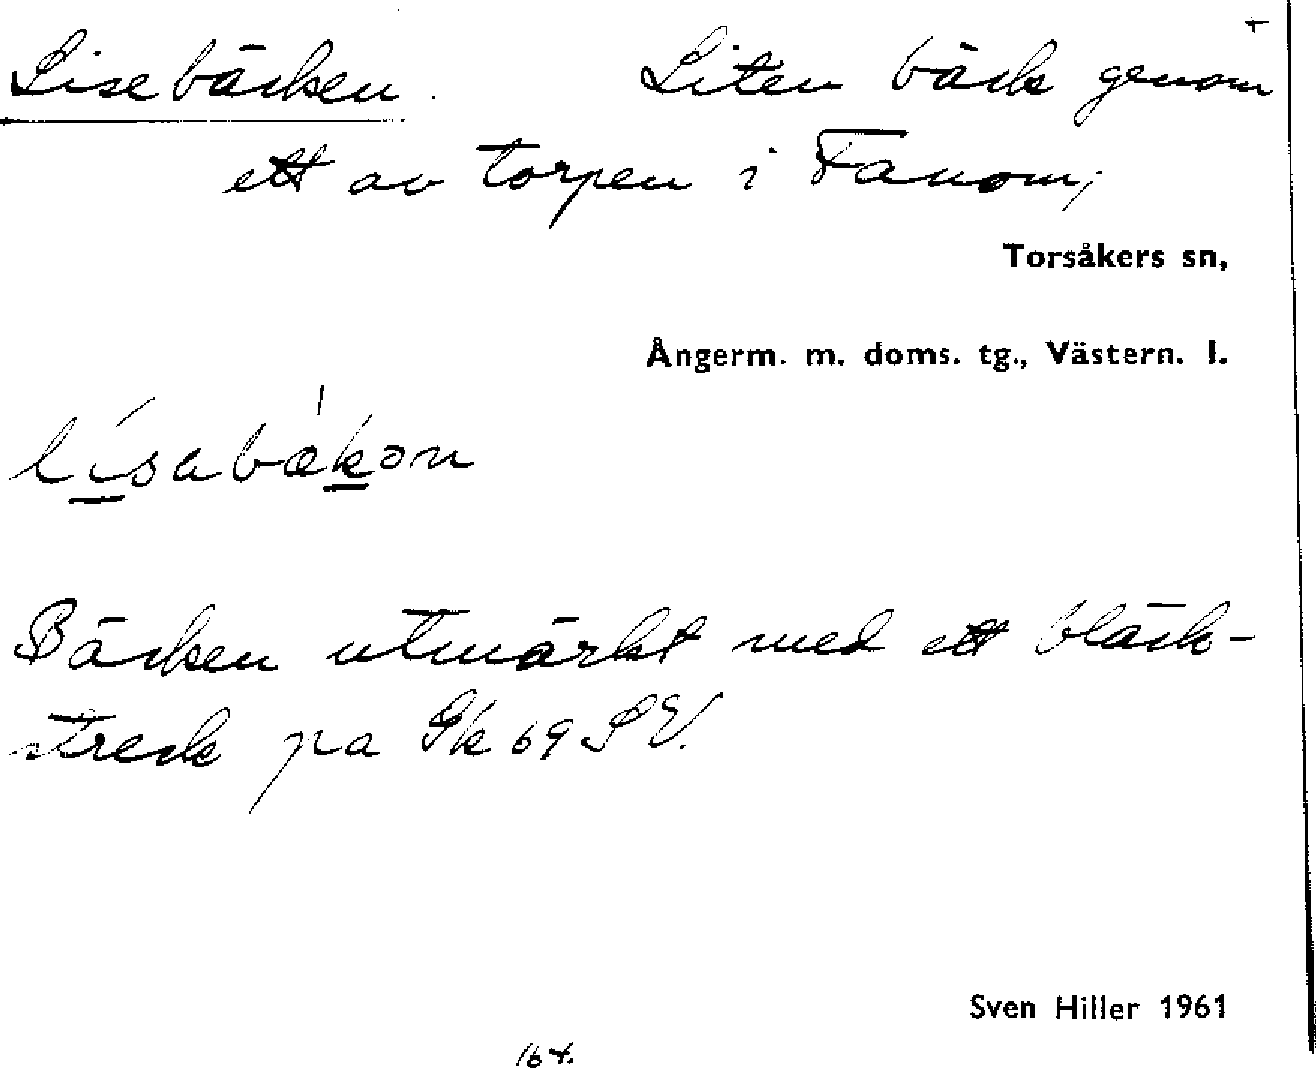 Lisebäcken. Liten bäck genom
ett av torpen i Fanom;
Torsåkers sn,
Ångerm. m. doms. tg., Västern. l.
lísabækon
Bäcken utmärkt med ett bläck-
streck på Gk 69 SV.
Sven Hiller 1961